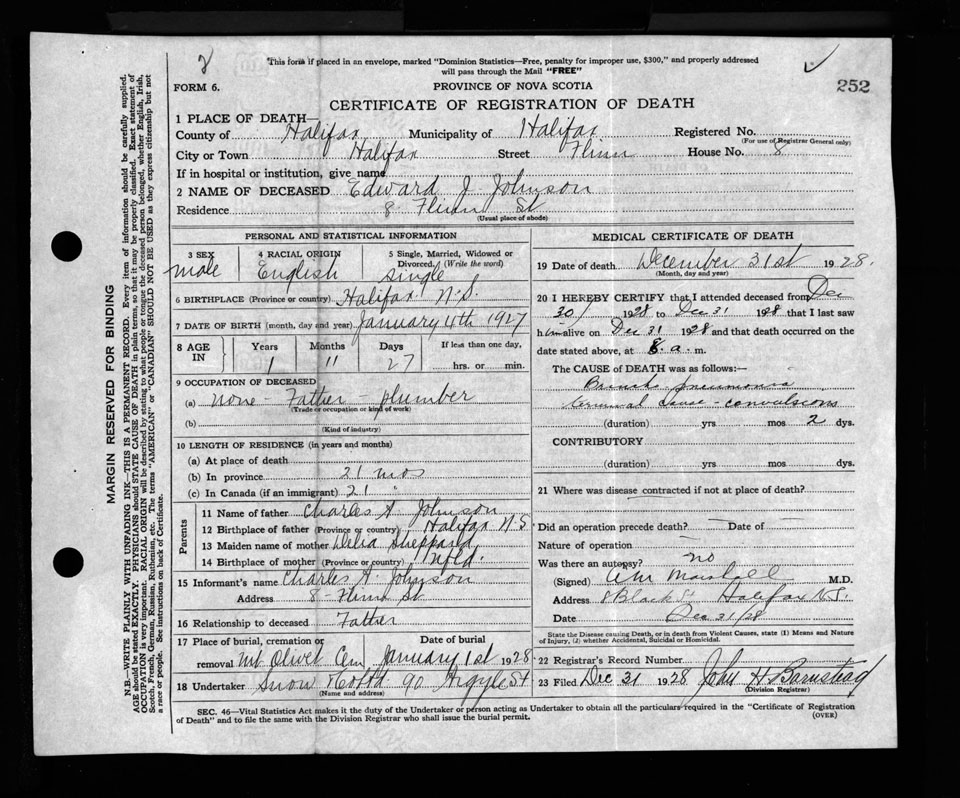 This form if placed in an envelope, marked "Dominion Statistics—Free, penalty for improper use, $300," and properly addressed
will pass through the Mail "FREE"
FORM 6.
PROVINCE OF NOVA SCOTIA
252
CERTIFICATE OF REGISTRATION OF DEATH
1 PLACE OF DEATH
County of Halifax Municipality of Halifax Registered No.
(For use of Registrar General only)
City or Town Halifax Street Flinn House No. 8
If in hospital or institution, give name
2 NAME OF DECEASED Edward J Johnson
Residence 8 Flinn St
(Usual place of abode)
PERSONAL AND STATISTICAL INFORMATION
3 SEX male
4 RACIAL ORIGIN English
5 Single, Married, Widowed or Divorced. (Write the word) single
6 BIRTHPLACE (Province or country) Halifax N.S.
7 DATE OF BIRTH (month, day and year) January 4th 1927
8 AGE IN Years 1 Months 11 Days 27 If less than one day, hrs. or min.
9 OCCUPATION OF DECEASED
(a) none - Father - plumber
(Trade or occupation or kind of work)
(b)
(Kind of industry)
10 LENGTH OF RESIDENCE (in years and months)
(a) At place of death
(b) In province 21 mos
(c) In Canada (if an immigrant) 21
Parents
11 Name of father Charles A Johnson
12 Birthplace of father (Province or country) Halifax N.S.
13 Maiden name of mother Delia Sheppard
14 Birthplace of mother (Province or country) Nfld.
15 Informant's name Charles A. Johnson
Address 8 - Flinn St
16 Relationship to deceased Father
17 Place of burial, cremation or removal Mt Olivet Cem Date of burial January 1st 1928
18 Undertaker Snow & Co Ltd 90 Argyle St
(Name and address)
MEDICAL CERTIFICATE OF DEATH
19 Date of death December 31st 1928.
(Month, day and year)
20 I HEREBY CERTIFY that I attended deceased from Dec
30/ 1928 to Dec 31 1928 that I last saw
him alive on Dec 31 1928 and that death occurred on
date stated above, at 8. a. m.
The CAUSE of DEATH was as follows:
Broncho pneumonia
Terminal Cause - convulsions
(duration) yrs mos 2 dys.
CONTRIBUTORY
(duration) yrs mos dys.
21 Where was disease contracted if not at place of death?
Did an operation precede death? — Date of —
Nature of operation —
Was there an autopsy? no
(Signed) Marshall M.D.
Address 8 Black St Halifax N.S.
Date Dec 31/28
State the Disease causing Death, or in death from Violent Causes, state (1) Means and Nature
of Injury, (2) whether Accidental, Suicidal or Homicidal.
22 Registrar's Record Number
23 Filed Dec 31 1928 John H Barnstead
(Division Registrar)
SEC. 46—Vital Statistics Act makes it the duty of the Undertaker or person acting as Undertaker to obtain all the particulars required in the "Certificate of Registration
of Death" and to file the same with the Division Registrar who shall issue the burial permit.
(OVER)
MARGIN RESERVED FOR BINDING
N.B.—WRITE PLAINLY WITH UNFADING INK—THIS IS A PERMANENT RECORD. Every item of information should be carefully supplied.
AGE should be stated EXACTLY. PHYSICIANS should STATE CAUSE OF DEATH in plain terms, so that it may be properly classified. Exact statement of
OCCUPATION is very important. RACIAL ORIGIN will be described by stating to what people or tongue the deceased person belonged, whether English, Irish,
Scotch, French, German, Russian, Ruthenian, etc. The terms "AMERICAN" or "CANADIAN" SHOULD NOT BE USED as they express citizenship but not
a race or people. See instructions on back of Certificate.